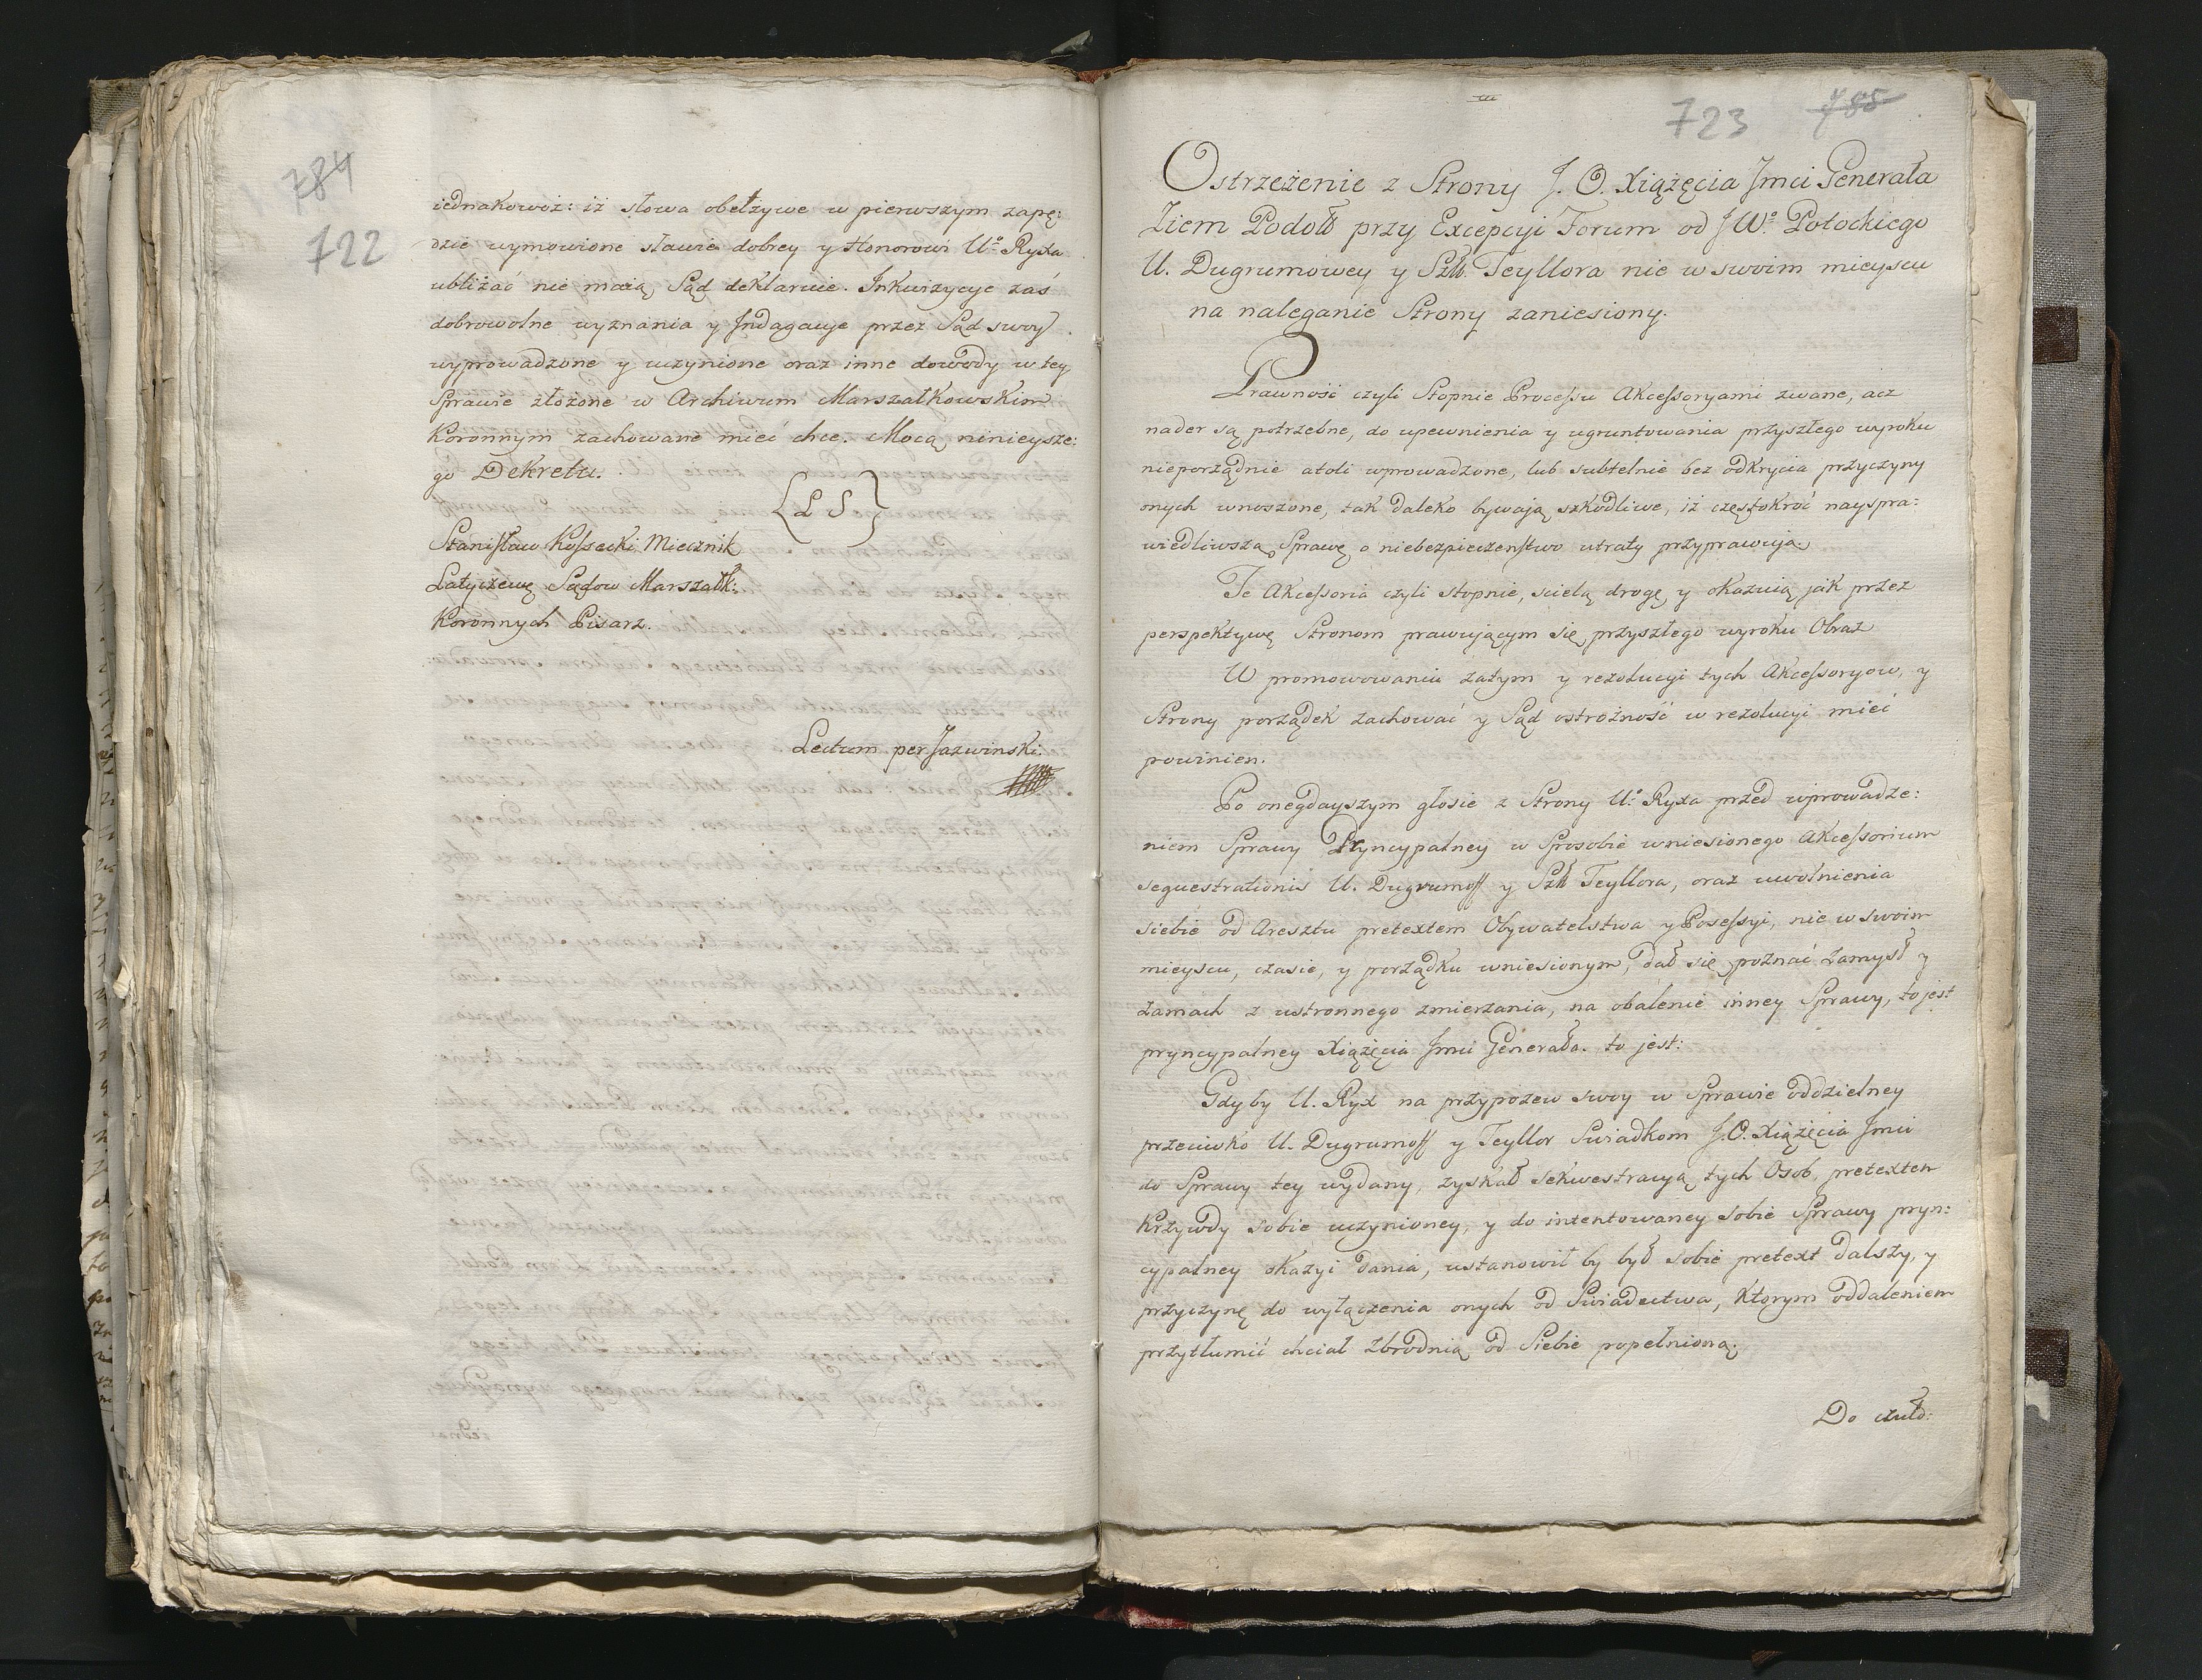 784
722
iednakowoż: iż słowa obelżywe w pierwszym zapę:
dzie wymowione sławie dobrey y Honorowi Uº Ryxa
ubliżać nie maią, Sąd deklaruie. Inkwizycye zaś
dobrowolne wyznania y Indagacye przez Sąd swoy
wyprowadzone y uczynione oraz inne dowody w tey
Sprawie złożone w Archiwum Marszałkowskim
Koronnym zachowane mieć chce. Mocą ninieysze:
go Dekretu.
{L S}
Stanisław Kossecki Miecznik
Latyczewę Sądow Marszałk:
Koronnych Pisarz.
Lectum per Jazwinski.
723 785
Ostrzeżenie z Strony J. O. Xiążęcia Jmci Generała
Ziem Podoł przy Excepcyi Forum od J Wº Potockiego
U. Dugrumowey y Szl. Teyllora nie w swoim mieyscu
na naleganie Strony zaniesiony.
Prawność czyli Stopnie Processu Akcessoryami zwane, acz
nader są potrzebne, do upewnienia y ugruntowania przyszłego wyroku
nieporządnie atoli wprowadzone, lub subtelnie bez odkrycia przyczyny
onych wnoszone, tak daleko bywają szkodliwe, iż częstokroć nayspra:
wiedliwszą Sprawę o niebezpieczeństwo utraty przyprawują.
Te Akcessoria czyli stopnie, scielą drogę, y okazuią jak przez
perspektywę Stronom prawującym się, przyszłego wyroku Obraz
W promowowaniu zatym y rezolucyi tych Akcessoryow, y
Strony porządek zachować y Sąd ostrożność w rezolucyi mieć
powinien.
Po onegdayszym głosie z Strony Uº Ryxa przed wprowadze:
niem Sprawy Pryncypalney w Sposobie wniesionego Akcessorium
sequestrationis U. Dugrumoff y Szl Teyllora, oraz uwolnienia
siebie od Aresztu pretextem Obywatelstwa y Posessyi, nie w swoim
mieyscu, czasie, y porządku wniesionym, dał się poznać zamysł y
zamach z ustronnego zmierzania, na obalenie inney Sprawy, to jest
pryncypalney Xiążęcia Jmci Generała. to jest:
Gdyby U. Ryx na przypozew swoy w Sprawie oddzielney
przeciwko U. Dugrumoff y Teyllor Swiadkom J.O. Xiążęcia Jmci
do Sprawy tey wydany, zyskał sekwestracyą tych Osob, pretextem
Krzywdy sobie uczynioney, y do intentowaney sobie Sprawy pryn:
cypalney okazyi dania, ustanowił by był sobie pretext dalszy, y
przyczynę do wyłączenia onych od Swiadectwa, Ktorym oddaleniem
przytłumić chciał zbrodnią od Siebie popełnioną.
Do